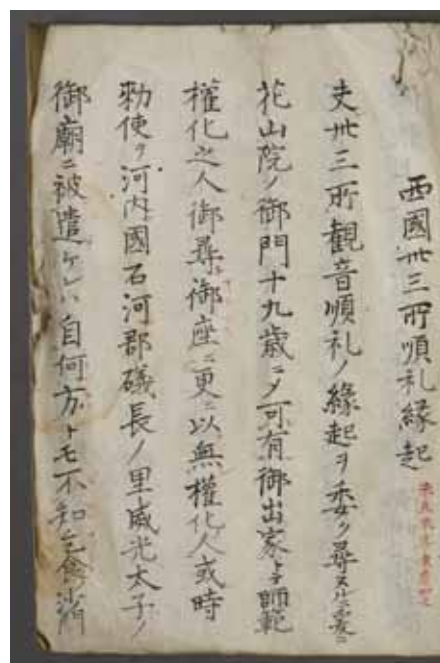 西國卅三所順礼縁起
夫卅三所観音順礼ノ縁起ヲ委ク尋ヌルニ
花山院ノ御門十九歳ニノ可有御出家トテ師範
權化之人御尋御座ニ更ニ以無權化人或時
勅使ヲ河内國石河郡磯長ノ里威光太子ノ
御廟ニ被遣ケレハ自何方トモ不知乞食沙門